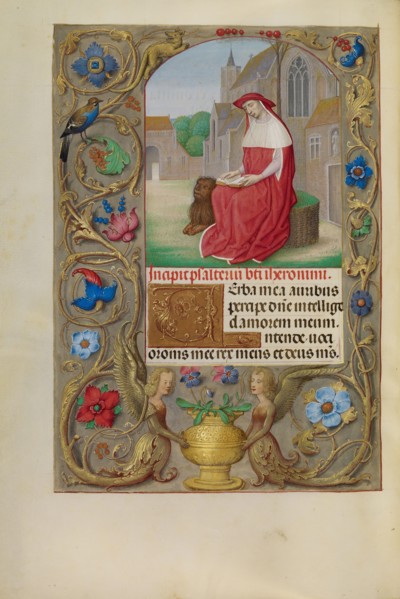 Incipit psalteriū bti iheronimi.
VErba mea auribus
percipe dn̄e intellige
clamorem meum.
Intende uoci
orōnis mee rex meus et deus ms̄.